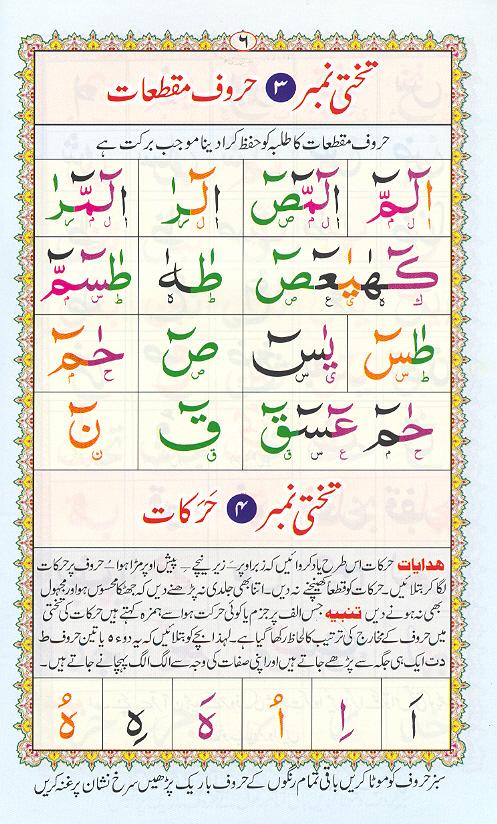 ٦
تختی نمبر ۳ حروف مقطعات
حروف مقطعات کا طلبہ کو حفظ کرا دینا موجب برکت ہے
الٓمّٓ الٓمّٓصٓ الٓرٰ الٓمّٓرٰ
ا ل م ا ل م ص ا ل ر ا ل م ر
كٓهٰيٰعٓصٓ طٰهٰ طٰسٓمّٓ
ك ه ی ع ص ط ه ط س م
طٰسٓ يٰسٓ صٓ حٰمٓ
ط س ی س ص ح م
حٰمٓ عٓسٓقٓ قٓ نٓ
ح م ع س ق ق ن
تختی نمبر ۴ حَرَکات
ھدایات حرکات اس طرح یاد کروائیں کہ زبر اوپر زیر نیچے پیش اوپر مڑا ہوا حروف پر حرکات
لگا کر بتلائیں۔ حرکات کو قطعاً کھینچنے نہ دیں۔ اتنا بھی جلدی نہ پڑھنے دیں کہ جھٹکا محسوس ہو اور مجہول
بھی نہ ہونے دیں تنبیہ جس الف پر جزم یا کوئی حرکت ہو اسے ہمزہ کہتے ہیں حرکات کی تختی
میں حروف کے مخارج کی ترتیب کا لحاظ رکھا گیا ہے۔ لہٰذا بچے کو بتلائیں کہ یہ دو ء ہ یا تین حروف ط
د ت ایک ہی جگہ سے پڑھے جاتے ہیں اور اپنی صفات کی وجہ سے الگ الگ پہچانے جاتے ہیں۔
اَ اِ اُ هَ هِ هُ
سبز حروف کو موٹا کریں باقی تمام رنگوں کے حروف باریک پڑھیں سرخ نشان پر غنہ کریں